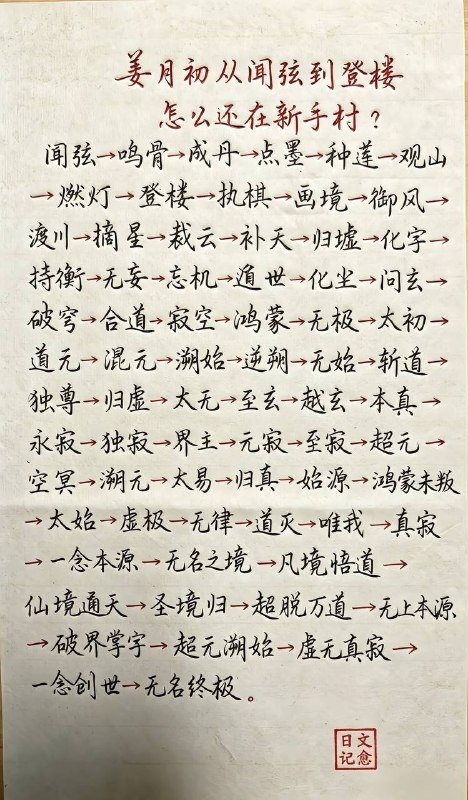 姜月初从闻弦到登楼
怎么还在新手村？
闻弦→鸣骨→成丹→点墨→种莲→观山
→燃灯→登楼→执棋→画境→御风→
渡川→摘星→裁云→补天→归墟→化宇→
持衡→无妄→忘机→遁世→化尘→问玄→
破穹→合道→寂空→鸿蒙→无极→太初→
道元→混元→溯始→逆朔→无始→斩道→
独尊→归虚→太无→至玄→越玄→本真→
永寂→独寂→界主→元寂→至寂→超元→
空冥→溯元→太易→归真→始源→鸿蒙未叛
→太始→虚极→无律→道灭→唯我→真寂
→一念本源→无名之境→凡境悟道→
仙境通天→圣境归→超脱万道→无上本源
→破界掌宇→超元溯始→虚无真寂→
一念创世→无名终极。
文愈
日记